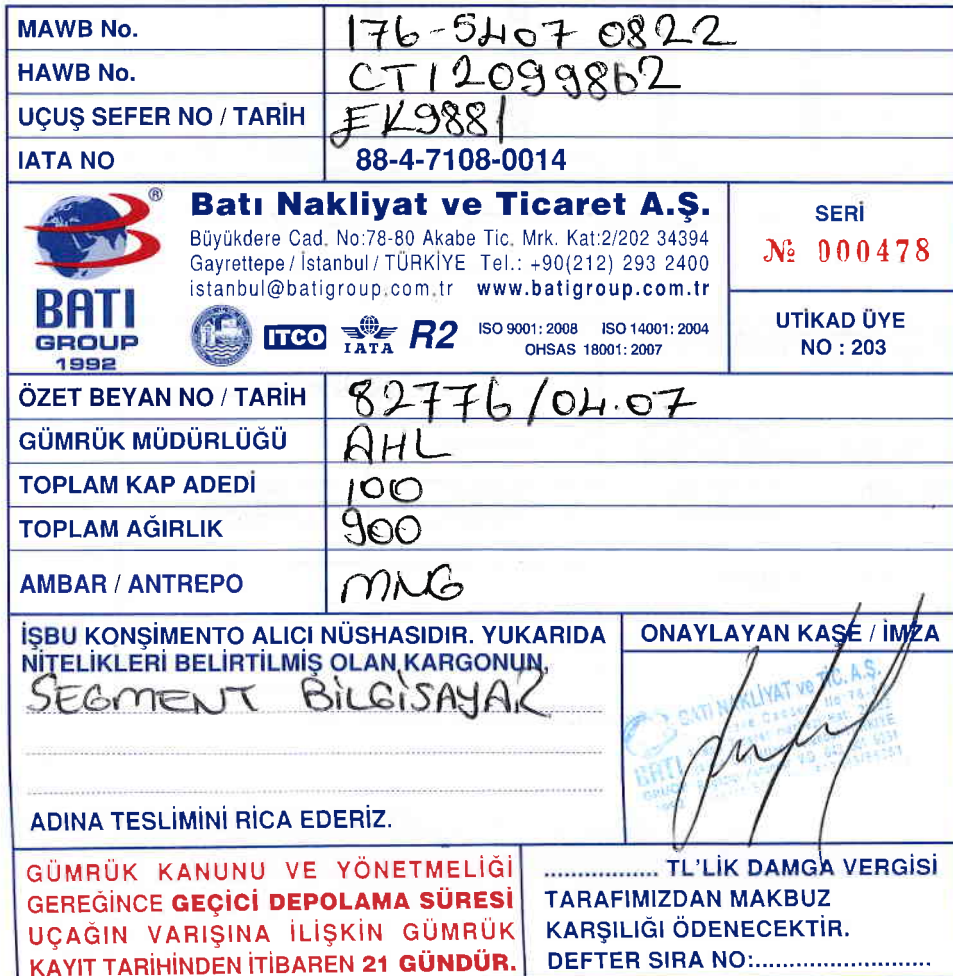 MAWB No. 176-5407 0822
HAWB No. CT12099862
UÇUŞ SEFER NO / TARİH EK9881
IATA NO 88-4-7108-0014
Batı Nakliyat ve Ticaret A.Ş.
Büyükdere Cad. No:78-80 Akabe Tic. Mrk. Kat:2/202 34394
Gayrettepe / İstanbul / TÜRKİYE Tel.: +90(212) 293 2400
istanbul@batigroup.com.tr www.batigroup.com.tr
BATI
GROUP
1992
ITCO IATA R2 ISO 9001: 2008 ISO 14001: 2004
OHSAS 18001: 2007
SERİ
№ 000478
UTİKAD ÜYE
NO : 203
ÖZET BEYAN NO / TARİH 82776/04.07
GÜMRÜK MÜDÜRLÜĞÜ AHL
TOPLAM KAP ADEDİ 100
TOPLAM AĞIRLIK 900
AMBAR / ANTREPO MNG
İŞBU KONŞİMENTO ALICI NÜSHASIDIR. YUKARIDA
NİTELİKLERİ BELİRTİLMİŞ OLAN KARGONUN,
SEGMENT BİLGİSAYAR
ADINA TESLİMİNİ RİCA EDERİZ.
ONAYLAYAN KAŞE / İMZA
BATI NAKLİYAT ve TİC. A.Ş.
BATI
GÜMRÜK KANUNU VE YÖNETMELİĞİ
GEREĞİNCE GEÇİCİ DEPOLAMA SÜRESİ
UÇAĞIN VARIŞINA İLİŞKİN GÜMRÜK
KAYIT TARİHİNDEN İTİBAREN 21 GÜNDÜR.
.................. TL'LİK DAMGA VERGİSİ
TARAFIMIZDAN MAKBUZ
KARŞILIĞI ÖDENECEKTİR.
DEFTER SIRA NO:............................